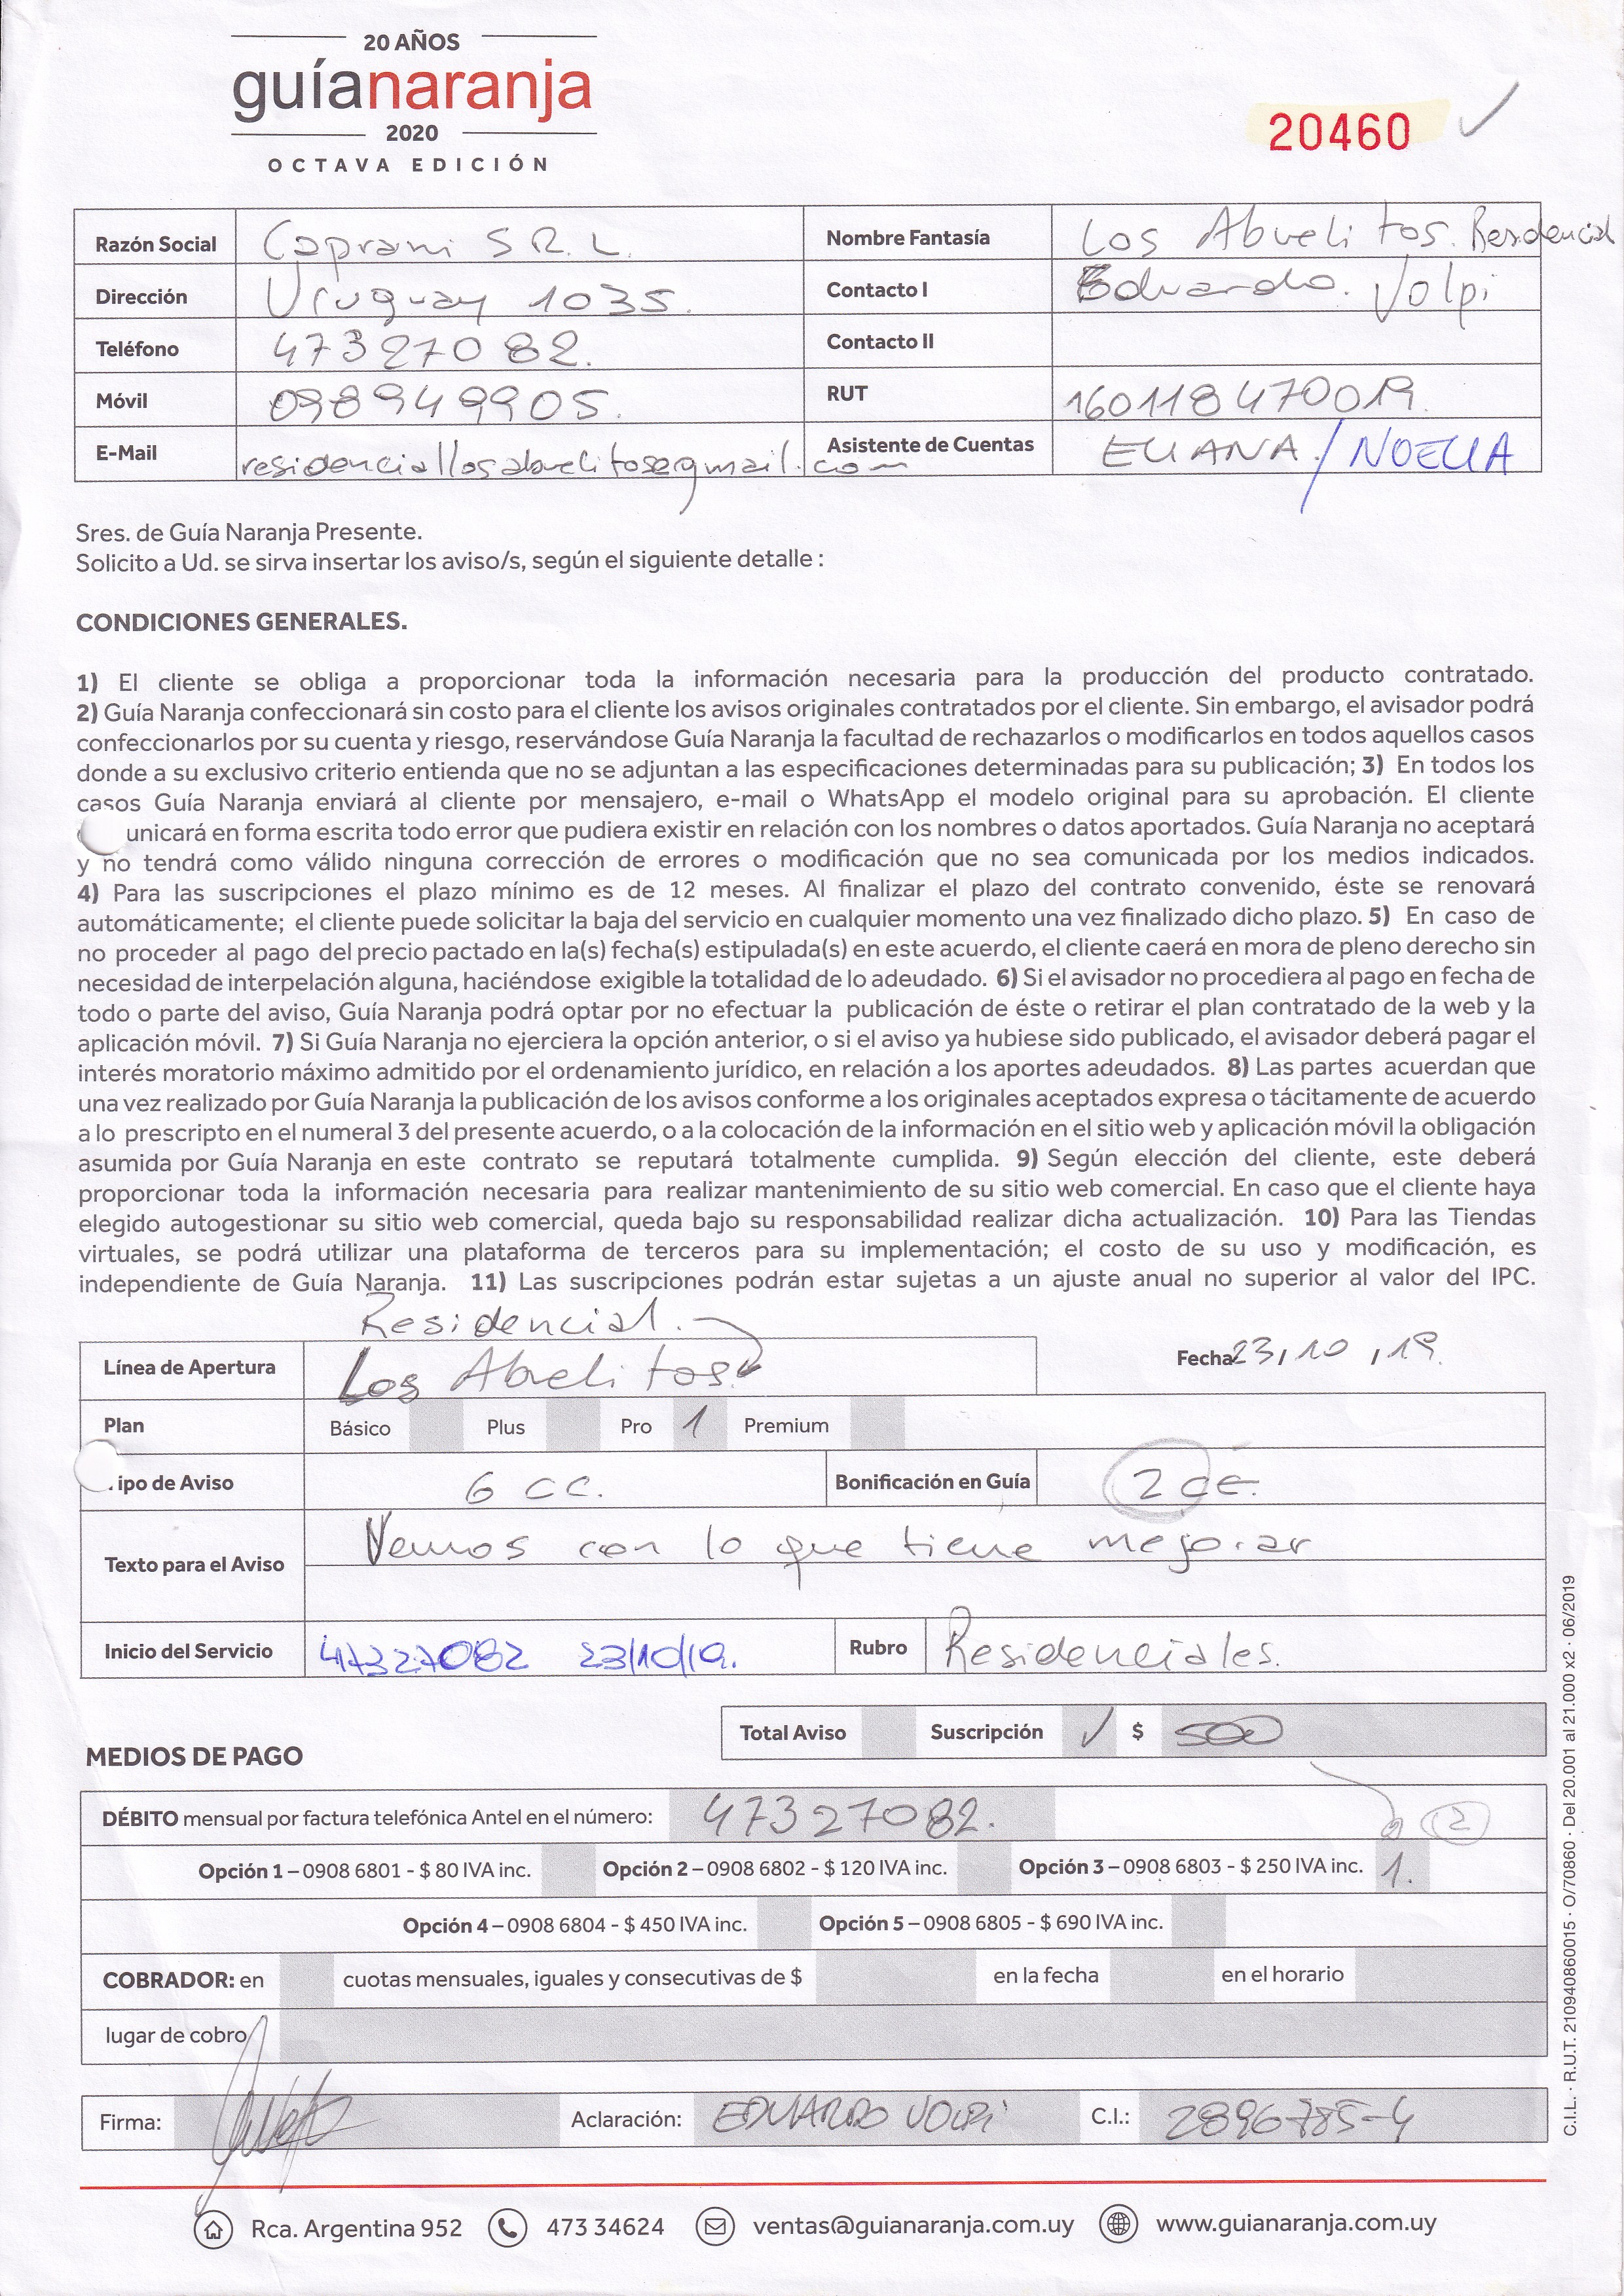 20 AÑOS
guíanaranja
2020
OCTAVA EDICIÓN
20460
Razón Social Caprani S.R.L. Nombre Fantasía Los Abuelitos. Residencial
Dirección Uruguay 1035. Contacto I Eduardo. Volpi
Teléfono 47327082. Contacto II
Móvil 098949905. RUT 160118470019.
E-Mail residenciallosabuelitos@gmail.com Asistente de Cuentas ELIANA / NOELIA
Sres. de Guía Naranja Presente.
Solicito a Ud. se sirva insertar los aviso/s, según el siguiente detalle :
CONDICIONES GENERALES.
1) El cliente se obliga a proporcionar toda la información necesaria para la producción del producto contratado.
2) Guía Naranja confeccionará sin costo para el cliente los avisos originales contratados por el cliente. Sin embargo, el avisador podrá
confeccionarlos por su cuenta y riesgo, reservándose Guía Naranja la facultad de rechazarlos o modificarlos en todos aquellos casos
donde a su exclusivo criterio entienda que no se adjuntan a las especificaciones determinadas para su publicación; 3) En todos los
casos Guía Naranja enviará al cliente por mensajero, e-mail o WhatsApp el modelo original para su aprobación. El cliente
unicará en forma escrita todo error que pudiera existir en relación con los nombres o datos aportados. Guía Naranja no aceptará
y no tendrá como válido ninguna corrección de errores o modificación que no sea comunicada por los medios indicados.
4) Para las suscripciones el plazo mínimo es de 12 meses. Al finalizar el plazo del contrato convenido, éste se renovará
automáticamente; el cliente puede solicitar la baja del servicio en cualquier momento una vez finalizado dicho plazo. 5) En caso de
no proceder al pago del precio pactado en la(s) fecha(s) estipulada(s) en este acuerdo, el cliente caerá en mora de pleno derecho sin
necesidad de interpelación alguna, haciéndose exigible la totalidad de lo adeudado. 6) Si el avisador no procediera al pago en fecha de
todo o parte del aviso, Guía Naranja podrá optar por no efectuar la publicación de éste o retirar el plan contratado de la web y la
aplicación móvil. 7) Si Guía Naranja no ejerciera la opción anterior, o si el aviso ya hubiese sido publicado, el avisador deberá pagar el
interés moratorio máximo admitido por el ordenamiento jurídico, en relación a los aportes adeudados. 8) Las partes acuerdan que
una vez realizado por Guía Naranja la publicación de los avisos conforme a los originales aceptados expresa o tácitamente de acuerdo
a lo prescripto en el numeral 3 del presente acuerdo, o a la colocación de la información en el sitio web y aplicación móvil la obligación
asumida por Guía Naranja en este contrato se reputará totalmente cumplida. 9) Según elección del cliente, este deberá
proporcionar toda la información necesaria para realizar mantenimiento de su sitio web comercial. En caso que el cliente haya
elegido autogestionar su sitio web comercial, queda bajo su responsabilidad realizar dicha actualización. 10) Para las Tiendas
virtuales, se podrá utilizar una plataforma de terceros para su implementación; el costo de su uso y modificación, es
independiente de Guía Naranja. 11) Las suscripciones podrán estar sujetas a un ajuste anual no superior al valor del IPC.
Residencial.
Línea de Apertura Los Abuelitos. Fecha 23/10/19.
Plan Básico Plus Pro 1 Premium
ipo de Aviso 6 CC. Bonificación en Guía 2 CC.
Texto para el Aviso Vemos con lo que tiene mejorar
Inicio del Servicio 47327082 23/10/19. Rubro Residenciales.
Total Aviso Suscripción ✓ $ 500
MEDIOS DE PAGO
DÉBITO mensual por factura telefónica Antel en el número: 47327082. 2
Opción 1 – 0908 6801 - $ 80 IVA inc. Opción 2 – 0908 6802 - $ 120 IVA inc. Opción 3 – 0908 6803 - $ 250 IVA inc. 1.
Opción 4 – 0908 6804 - $ 450 IVA inc. Opción 5 – 0908 6805 - $ 690 IVA inc.
COBRADOR: en cuotas mensuales, iguales y consecutivas de $ en la fecha en el horario
lugar de cobro
Firma: Aclaración: EDUARDO VOLPI C.I.: 2896785-4
Rca. Argentina 952 473 34624 ventas@guianaranja.com.uy www.guianaranja.com.uy
C.I.L. · R.U.T. 210940860015 · O/70860 · Del 20.001 al 21.000 x2 · 06/2019